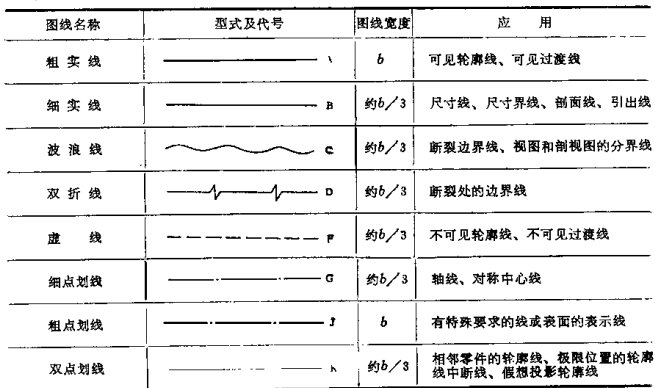 图线名称 型式及代号 图线宽度 应 用
粗 实 线 A b 可见轮廓线、可见过渡线
细 实 线 B 约b/3 尺寸线、尺寸界线、剖面线、引出线
波 浪 线 C 约b/3 断裂边界线、视图和剖视图的分界线
双 折 线 D 约b/3 断裂处的边界线
虚 线 F 约b/3 不可见轮廓线、不可见过渡线
细点划线 G 约b/3 轴线、对称中心线
粗点划线 J b 有特殊要求的线或表面的表示线
双点划线 K 约b/3 相邻零件的轮廓线、极限位置的轮廓
线中断线、假想投影轮廓线